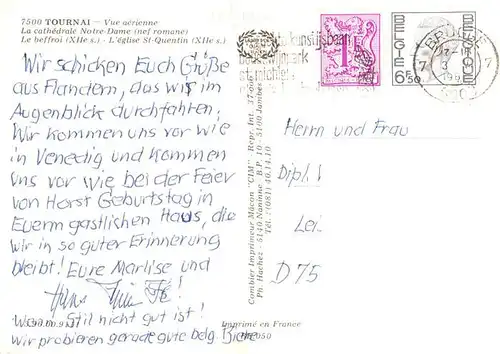 7500 TOURNAI – Vue aérienne
La cathédrale Notre-Dame (nef romane)
Le beffroi (XIIe s.) - L'église St-Quentin (XIIe s.)
Wir schicken Euch Grüße
aus Flandern, das wir im
Augenblick durchfahren.
Wir kommen uns vor wie
in Venedig und kommen
uns vor wie bei der Feier
von Horst Geburtstag in
Euerm gastlichen Haus, die
wir in so guter Erinnerung
bleibt! Eure Marlise und
Hans
Wenn Stil nicht gut ist!
wir probieren gerade gute belg. Biere
Combier Imprimeur Mâcon "CIM" - Repr. Int.
Ph. Hachez - 5140 Naninne - B.P. 10 - 5100 Jambes
Tél. (081) 40.14.10
Imprimé en France
1F
BELGIE
BELGIQUE
650
BRUGGE
7 7
3
Herrn und Frau
Dipl.
Lei
D 75